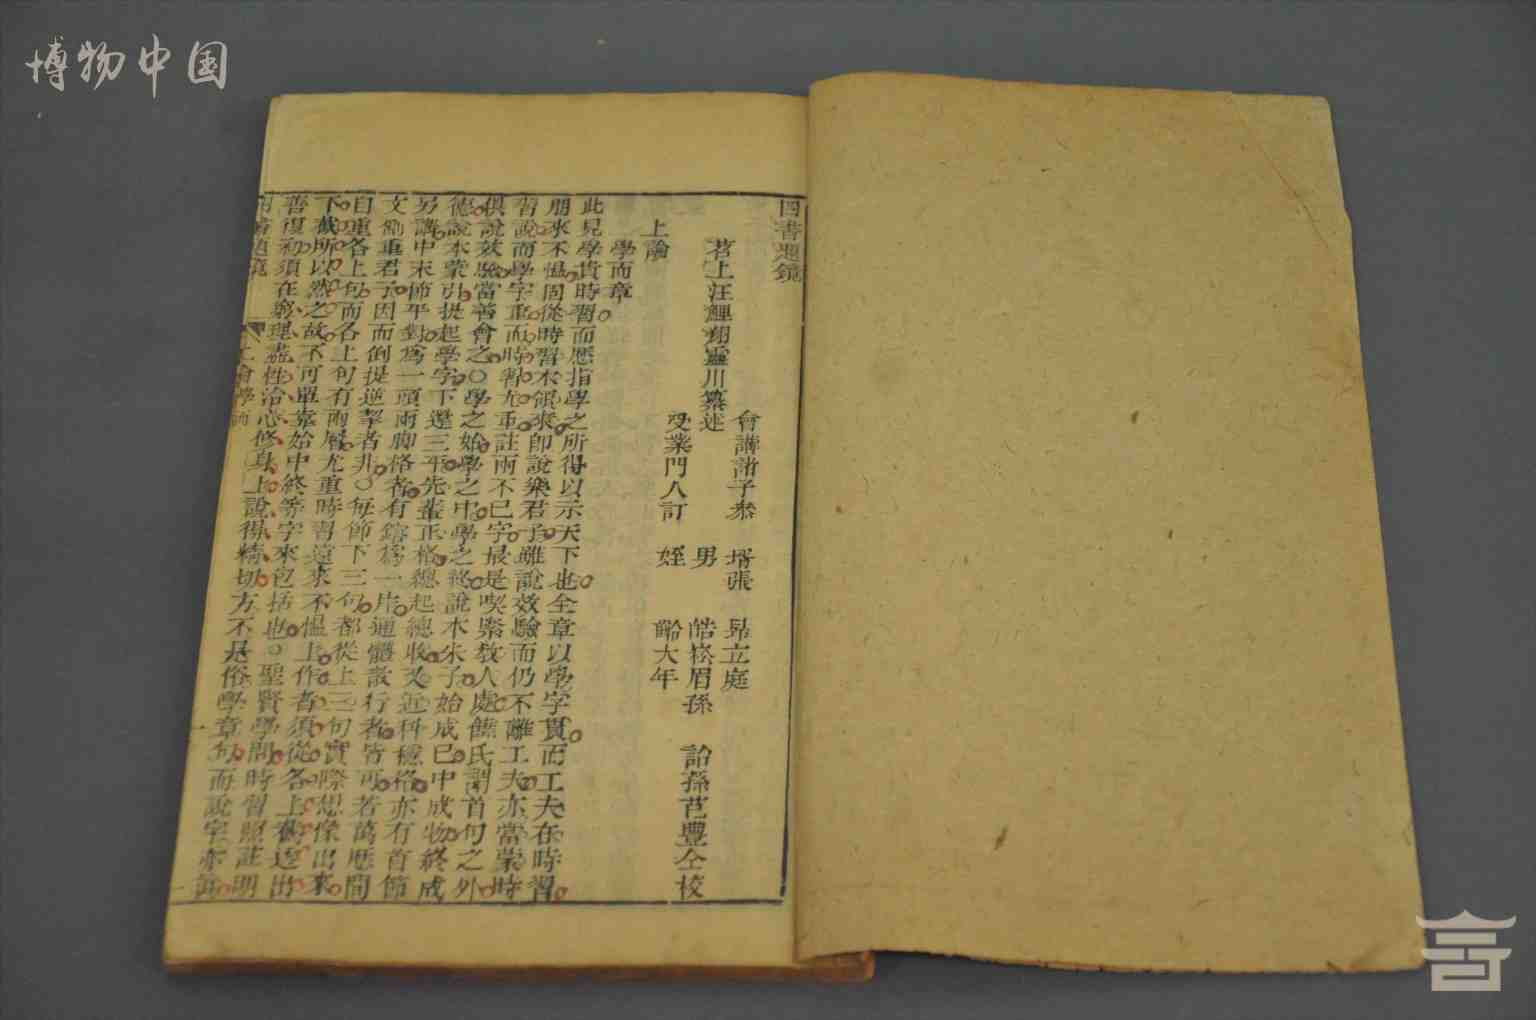 博物中国
四書題鏡
會講諸子叅 壻張 昻立庭
苕上汪鯉翔靈川纂述 男 皓崧眉孫 詒孫芑豐仝校
受業門人訂 姪 齡大年
上論
學而章
此見學貴時習而應指學之所得以示天下也全章以學字貫而工夫在時習
朋來不慍固從時習本領來即說樂君子雖說效驗而仍不離工夫亦當蒙時
習說而學字重而時習尤重註兩不已字最是喫緊敎人處饒氏謂首句之外
俱說效驗當善會之○學之始學之中學之終說本朱子始成巳中成物終成
德說本蒙引提起學字下還三平先輩正格總起總收又近科穩格亦有首節
另講中末節平對爲一頭兩脚格者有鎔爲一片通體散行者皆可若萬歴間
文側重君子因而倒提逆挈者非○每節下三句都從上三句實際想像出來
自重各上句而各上句有兩層尤重時習遠來不慍上作者須從各上截逆出
下截所以然之故不可單靠始中終等字來包括也○聖賢學問時習照註明
善復初須在窮理盡性治心修身上說得精切方不是俗學章句而說字亦
四書題鏡 上論學而 一